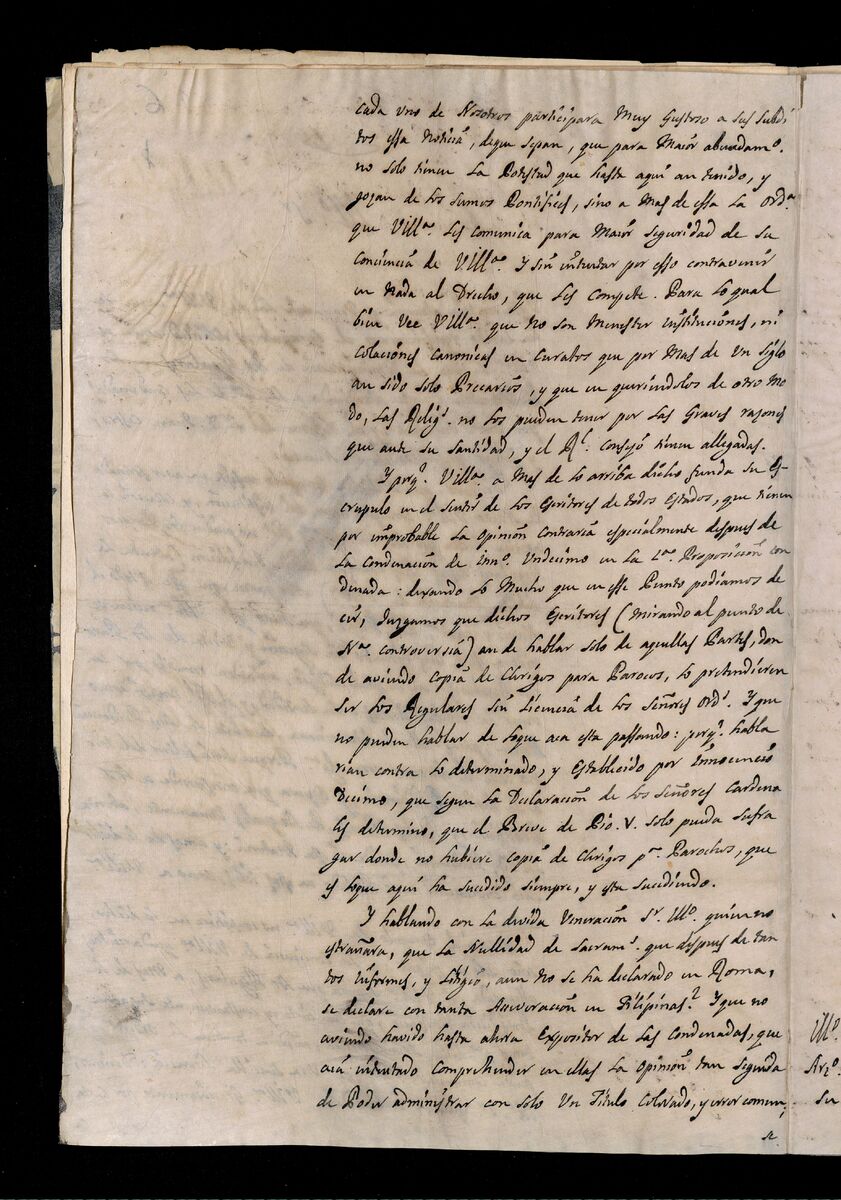 cada uno de Nosotros participara Muy Gustoso a sus subdi
tos essa Noticia, deque sepan, que para Maior abundam.º
no solo tienen La Potestad que hasta aqui an tenido, y
gozan de Los Sumos Pontifices, sino a Mas de essa La Ord.ª
que VIll.ª Les comunica para Maior seguridad de su
Conciencia de VIll.ª. Y sin intentar por esso contravenir
en Nada al Drecho, que Les Compete. Para Lo qual
bien Vee VIll.ª que No son Menester instituciones, ni
colaciones canonicas en Curatos que por Mas de Un siglo
an sido solo Precarios, y que en queriendolos de otro Mo
do, Las Relig.s no Los pueden tener por Las Graves razones
que ante su Santidad, y el R.l Consejo tienen allegadas.
Y porq.e VIll.ª a Mas de Lo arriba dicho funda su Es-
crupulo en el sentir de Los Escritores de todos Estados, que tienen
por improbable La Opinion Contraria especialmente despues de
La Condenacion de Inn.º Undecimo en La 1.ª Proposicion con
denada: dexando Lo Mucho que en esse Punto podiamos de
cir, Juzgamos que dichos Escritores (Mirando al punto de
N.ª controversia) an de hablar solo de aquellas Partes, don
de aviendo copia de Clerigos para Parocos, Lo pretendieren
ser Los Regulares sin Licencia de Los Señores Ord.s Y que
no pueden hablar de Loque aca esta passando: porq.e habla
rian contra Lo determinado, y Establecido por Innocencio
Decimo, que segun La Declaracion de Los Señores Cardena
les determino, que el Breve de Pio. V. solo pueda sufra
gar donde no hubiere copia de Clerigos p.ª Parochos, que
es Loque aqui ha sucedido siempre, y esta sucediendo.
Y hablando con La devida Veneracion S.r Ill.º quien no
estrañara, que La Nullidad de Sacram.s que despues de tan
tos informes, y Litigio, aun no se ha declarado en Roma,
se declare con tanta Asseveracion en Filipinas? Y que no
aviendo havido hasta ahora Expositor de Las Condenadas, que
aia intentado Comprehender en ellas La Opinion tan Segunda
de Poder administrar con solo Un Titulo Colorado, y error comun;
se
Ill.º
Arz.º
su